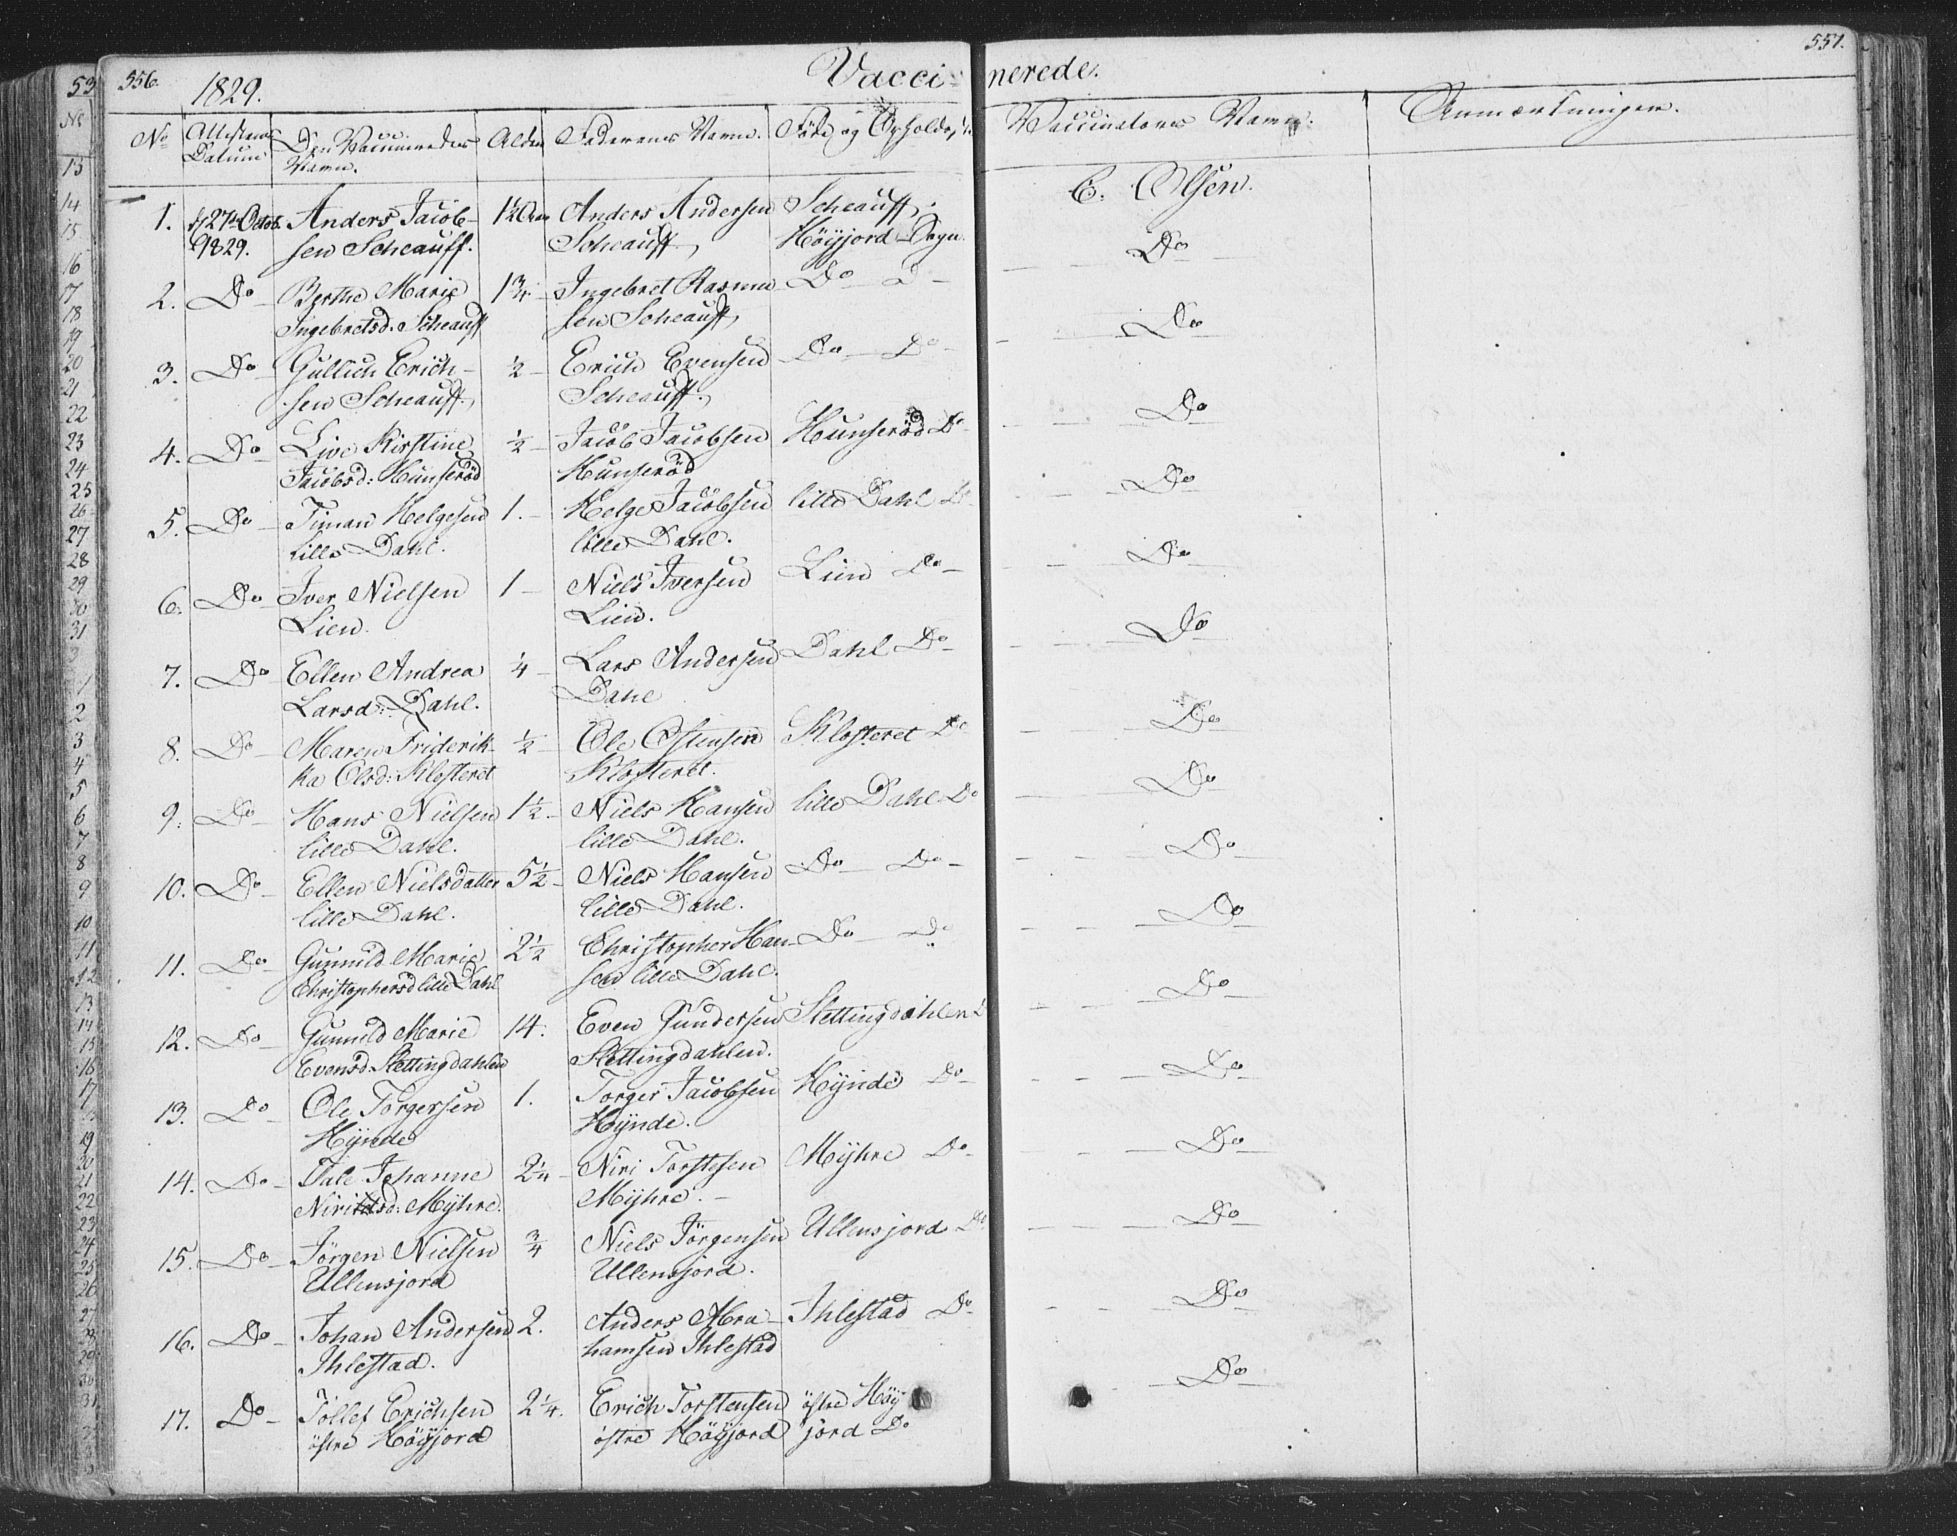 556.
1829.
Vaccinerede.
557.
No
Attestens Datum
Den Vaccineredes Navn.
Alder
Faderens Navn.
Føde og Opholds
Vaccinateurs Navn.
Anmærkninger.
1. 27de Octob. 1829. Anders Jacobsen Scheauff. 1½ Aar Anders Andersen Scheauff, Scheauff, Høyjord Sogn C. Olsen.
2. Do Berthe Marie Ingebretsd. Scheauff 1¾ Ingebret Rasmusen Scheauff, Do Do Do
3. Do Gullich Erichsen Scheauff, ½ Erich Evensen Scheauff, Do Do Do
4. Do Live Kirstine Jacobsd: Hunserød ½ Jacob Jacobsen Hunserød Hunserød Do Do
5. Do Timan Helgesen lille Dahl. 1. Helge Jacobsen lille Dahl. lille Dahl Do Do
6. Do Iver Nielsen Lien. 1 Niels Iversen Lien. Lien Do Do
7. Do Ellen Andrea Larsd: Dahl. ¼ Lars Andersen Dahl Dahl Do Do
8. Do Maren Friderikka Olsd: Klosteret ½ Ole Ostensen Klosteret. Klosteret Do Do
9. Do Hans Nielsen lille Dahl. 1½ Niels Hansen lille Dahl. lille Dahl Do Do
10. Do Ellen Nielsdatter lille Dahl. 5½ Niels Hansen lille Dahl. Do Do Do
11. Do Gunnild Marie Christophersd lille Dahl 2½ Christopher Hansen lille Dahl. Do Do Do
12. Do Gunnild Marie Evensd. Slettingdahlen 14. Even Gundersen Slettingdahlen. Slettingdahlen Do
13. Do Ole Torgersen Hÿnde 1. Torger Jacobsen Hÿnde. Hÿnde Do Do
14. Do Tale Johanne Nirisd: Mÿhre. 2¼ Niri Torstesen Mÿhre. Mÿhre Do Do
15. Do Jörgen Nielsen Ullensjord ¾ Niels Jörgensen Ullensjord. Ullensjord Do Do
16. Do Johan Andersen Ihlestad. 2. Anders Abrahamsen Ihlestad Ihlestad Do Do
17. Do Tollef Erichsen østre Høÿjord 2¼. Erich Torstensen østre Høÿjord østre Høÿjord Do Do